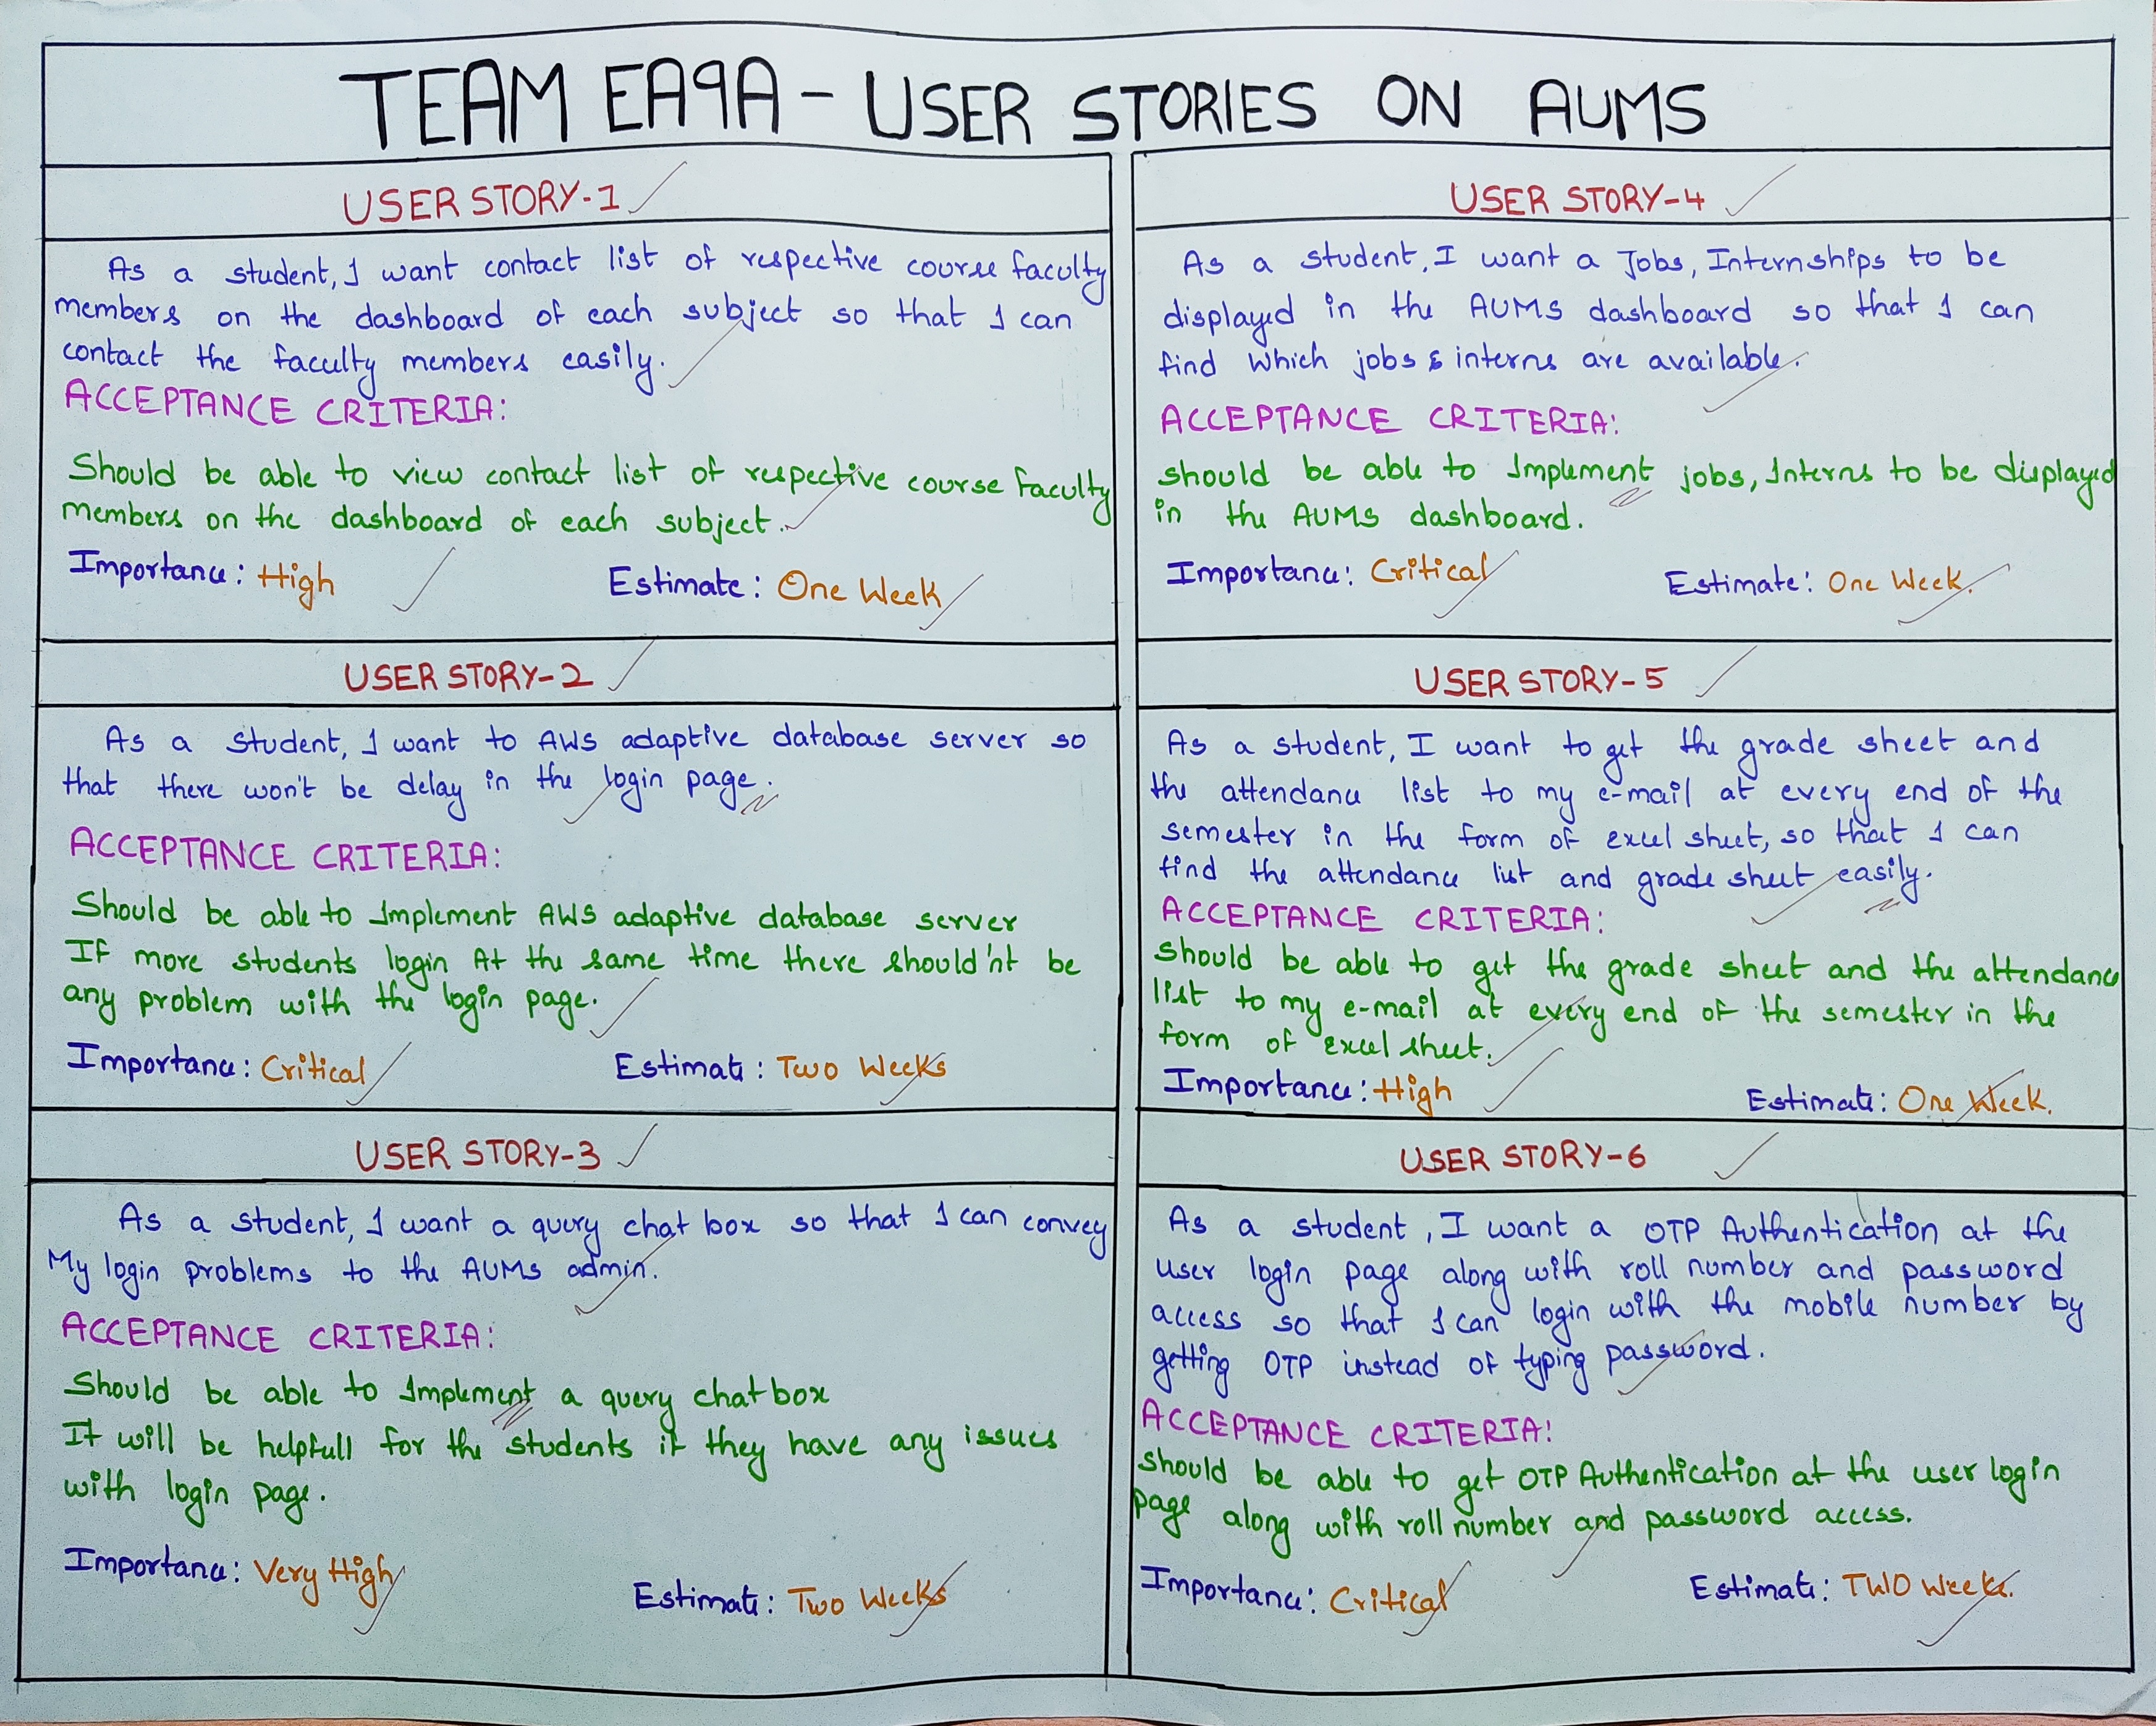 TEAM EA9A - USER STORIES ON AUMS
USER STORY-1
As a student, I want contact list of respective course faculty
members on the dashboard of each subject so that I can
contact the faculty members easily.
ACCEPTANCE CRITERIA:
Should be able to view contact list of respective course faculty
members on the dashboard of each subject.
Importance: High Estimate: One Week
USER STORY-2
As a student, I want to AWS adaptive database server so
that there won't be delay in the login page.
ACCEPTANCE CRITERIA:
Should be able to Implement AWS adaptive database server
If more students login At the same time there should'nt be
any problem with the login page.
Importance: Critical Estimate: Two Weeks
USER STORY-3
As a student, I want a query chat box so that I can convey
My login problems to the AUMS admin.
ACCEPTANCE CRITERIA:
Should be able to Implement a query chat box
It will be helpfull for the students if they have any issues
with login page.
Importance: Very High Estimate: Two Weeks
USER STORY-4
As a student, I want a Jobs, Internships to be
displayed in the AUMS dashboard so that I can
find which jobs & interns are available.
ACCEPTANCE CRITERIA:
should be able to Implement jobs, Interns to be displayed
in the AUMS dashboard.
Importance: Critical Estimate: One Week.
USER STORY-5
As a student, I want to get the grade sheet and
the attendance list to my e-mail at every end of the
semester in the form of excel sheet, so that I can
find the attendance list and grade sheet easily.
ACCEPTANCE CRITERIA:
Should be able to get the grade sheet and the attendance
list to my e-mail at every end of the semester in the
form of excel sheet.
Importance: High Estimate: One Week.
USER STORY-6
As a student, I want a OTP Authentication at the
user login page along with roll number and password
access so that I can login with the mobile number by
getting OTP instead of typing password.
ACCEPTANCE CRITERIA:
Should be able to get OTP Authentication at the user login
page along with roll number and password access.
Importance: Critical Estimate: Two Weeks.